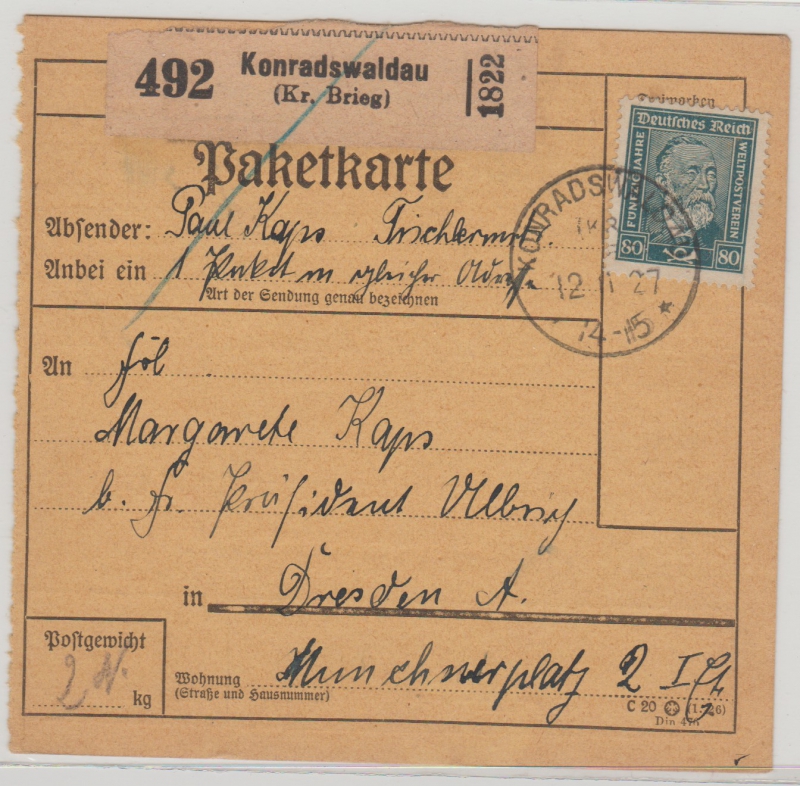 492 Konradswaldau
(Kr. Brieg)
1822
Paketkarte
Postwerken
Deutsches Reich
FÜNFZIG JAHRE
WELTPOSTVEREIN
80 80
KONRADSW
(KR
12 11 27
14-15 *
Absender: Paul Kaps Tischlermst.
Anbei ein 1 Paket m gleicher Adresse
Art der Sendung genau bezeichnen
An Frl
Margarete Kaps
b. Fr. Präsident Ulbrich
in Dresden A.
Postgewicht
2
kg
Wohnung Münchnerplatz 2 I Et
(Straße und Hausnummer)
C 20 (1. 26)
Din 476